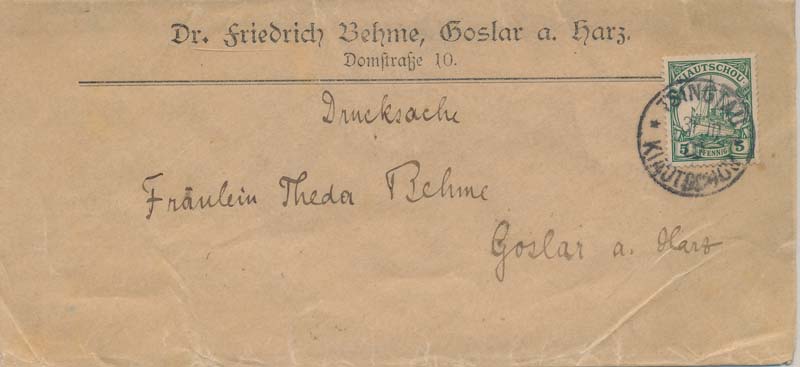 Dr. Friedrich Behme, Goslar a. Harz.
Domstraße 10.
Drucksache
Fräulein Theda Behme
Goslar a. Harz
KIAUTSCHOU
5 PFENNIG 5
TSINGTAU
KIAUTSCHOU